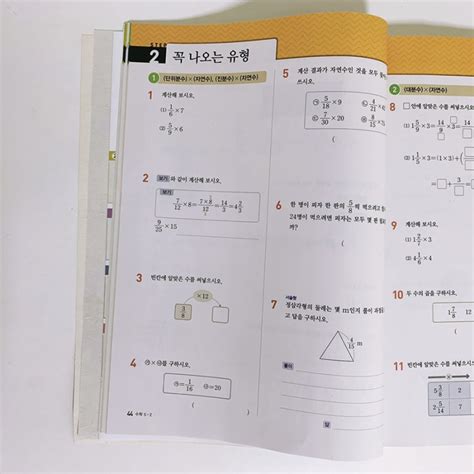 STEP
2 꼭 나오는 유형
1 (단위분수)×(자연수), (진분수)×(자연수)
1 계산해 보시오.
(1) 1/6 × 7
(2) 5/9 × 6
2 보기 와 같이 계산해 보시오.
보기
7/12 × 8 = 7×8/12 = 14/3 = 4 2/3
9/25 × 15
3 빈칸에 알맞은 수를 써넣으시오.
×12
3/8
4 ㉮×㉯를 구하시오.
㉮= 1/16 ㉯=20
( 
44 수학 5-2
5 계산 결과가 자연수인 것을 모두
쓰시오.
㉠ 5/18 × 9 ㉡ 4/21 ×
㉢ 7/30 × 20 ㉣ 8/15 ×
(
6 한 명이 피자 한 판의 5/8 씩 먹으려고
24명이 먹으려면 피자는 모두 몇 판
까?
(
서술형
7 정삼각형의 둘레는 몇 m인지 풀이
고 답을 구하시오.
4/15 m
풀이
답
2 (대분수)×(자연수)
8 □ 안에 알맞은 수를 써넣으시오
(1) 1 5/9 × 3 = 14/9 × 3 =
(2) 1 3/5 × 3 = (1×3) + (
= □ + □/
9 계산해 보시오.
(1) 1 2/7 × 3
(2) 4 1/6 × 4
10 두 수의 곱을 구하시오.
1 7/8 12
11 빈칸에 알맞은 수를 써넣으시오
×
5 3/8 2
2 5/14 7